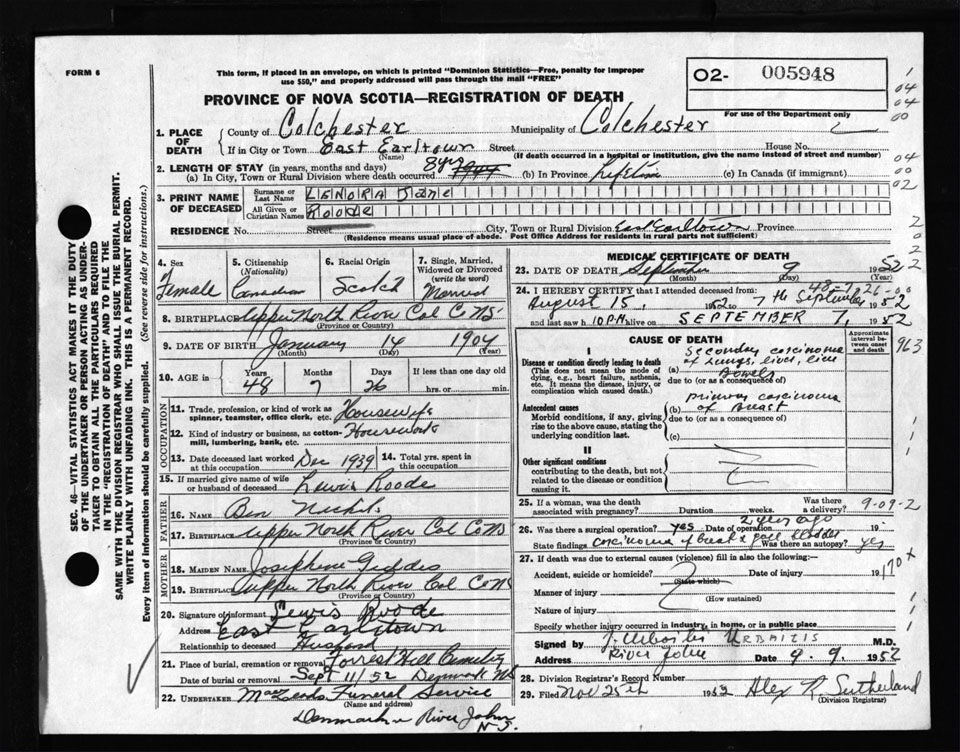 FORM 6
This form, if placed in an envelope, on which is printed "Dominion Statistics—Free, penalty for improper
use $50," and properly addressed will pass through the mail "FREE"
O2- 005948
For use of the Department only
PROVINCE OF NOVA SCOTIA—REGISTRATION OF DEATH
1. PLACE OF DEATH
County of Colchester Municipality of Colchester
If in City or Town East Earltown Street House No.
(Name) (If death occurred in a hospital or institution, give the name instead of street and number)
2. LENGTH OF STAY (in years, months and days)
(a) In City, Town or Rural Division where death occurred 8 yrs (b) In Province Lifetime (c) In Canada (if immigrant)
3. PRINT NAME OF DECEASED
Surname or Last Name LENORA Jane
All Given or Christian Names ROODE
RESIDENCE No. Street City, Town or Rural Division East Earltown Province
(Residence means usual place of abode. Post Office Address for residents in rural parts not sufficient)
4. Sex Female
5. Citizenship (Nationality) Canadian
6. Racial Origin Scotch
7. Single, Married, Widowed or Divorced (write the word) Married
8. BIRTHPLACE Upper North River Col Co NS
(Province or Country)
9. DATE OF BIRTH January 14 1904
(Month) (Day) (Year)
10. AGE in Years Months Days If less than one day old
48 7 26 hrs. or min.
OCCUPATION
11. Trade, profession, or kind of work as spinner, teamster, office clerk, etc. Housewife
12. Kind of industry or business, as cotton-mill, lumbering, bank, etc. Housework
13. Date deceased last worked at this occupation Dec 1939 14. Total yrs. spent in this occupation
15. If married give name of wife or husband of deceased Lewis Roode
FATHER
16. NAME Ben
17. BIRTHPLACE Upper North River Col Co NS
(Province or Country)
MOTHER
18. MAIDEN NAME Josephine Geddes
19. BIRTHPLACE Upper North River Col Co NS
(Province or Country)
20. Signature of informant Lewis Roode
Address East Earltown
Relationship to deceased Husband
21. Place of burial, cremation or removal Forrest Hill Cemetery
Date of burial or removal Sept 11/52 Denmark NS
22. UNDERTAKER MacLeods Funeral Service
(Name and address)
Denmark River John
N S.
MEDICAL CERTIFICATE OF DEATH
23. DATE OF DEATH September 9 1952
48-7-26
24. I HEREBY CERTIFY that I attended deceased from:
August 15, 1952 to 7th September 1952
and last saw h 10 PM alive on SEPTEMBER 7, 1952
CAUSE OF DEATH
Approximate interval between onset and death
I
Disease or condition directly leading to death
(This does not mean the mode of dying, e.g., heart failure, asthenia, etc. It means the disease, injury, or complication which caused death.)
(a) Secondary carcinoma of Lungs, liver, Bowels
due to (or as a consequence of)
Antecedent causes
Morbid conditions, if any, giving rise to the above cause, stating the underlying condition last.
(b) primary carcinoma of Breast
due to (or as a consequence of)
(c)
II
Other significant conditions
contributing to the death, but not related to the disease or condition causing it.
25. If a woman, was the death associated with pregnancy? Duration Weeks. Was there a delivery?
9-09-2
26. Was there a surgical operation? yes Date of operation 2 years ago 19
State findings carcinoma of breast & gall bladder Was there an autopsy? yes
27. If death was due to external causes (violence) fill in also the following:
Accident, suicide or homicide? Date of injury 19
(State which)
170 x
Manner of injury
(How sustained)
Nature of injury
Specify whether injury occurred in industry, in home, or in public place
Signed by URBAITIS M.D.
Address River John Date 9. 9. 1952
28. Division Registrar's Record Number
29. Filed Nov 25th 1952 Alex R Sutherland
(Division Registrar)
SEC. 46—VITAL STATISTICS ACT MAKES IT THE DUTY
OF THE UNDERTAKER OR PERSON ACTING AS UNDER-
TAKER TO OBTAIN ALL THE PARTICULARS REQUIRED
IN THE "REGISTRATION OF DEATH" AND TO FILE THE
SAME WITH THE DIVISION REGISTRAR WHO SHALL ISSUE THE BURIAL PERMIT.
WRITE PLAINLY WITH UNFADING INK. THIS IS A PERMANENT RECORD.
Every item of information should be carefully supplied. (See reverse side for instructions.)
1
04
04
00
04
00
02
2
0
2
2
963